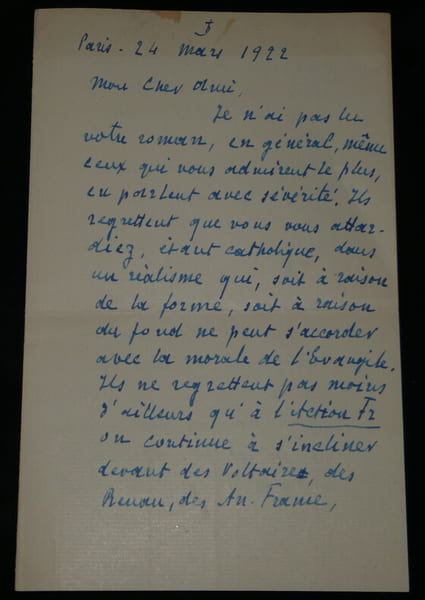 I
Paris - 24 Mars 1922
Mon Cher Ami,
Je n'ai pas lu
votre roman, en général, même
ceux qui vous admirent le plus,
en parlent avec sévérité. Ils
regrettent que vous vous attar-
diez, étant catholique, dans
un réalisme qui, soit à raison
de la forme, soit à raison
du fond ne peut s'accorder
avec la morale de l'Evangile.
Ils ne regrettent pas moins
d'ailleurs qu'à l'Action Fr
on continue à s'incliner
devant des Voltaire, des
Renan, des An. France,